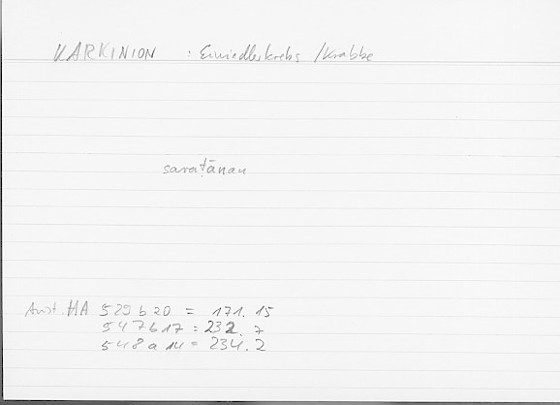 KARKINION : Einsiedlerkrebs / Krabbe
saraṭānan
Arist. HA 529 b 20 = 171.15
547 b 17 = 232.7
548 a 14 = 234.2